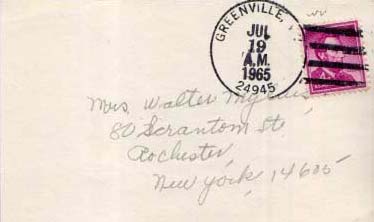 GREENVILLE,
JUL
19
A.M.
1965
24945
Mrs. Walter
80 Scrantom St.
Rochester,
New York 14605